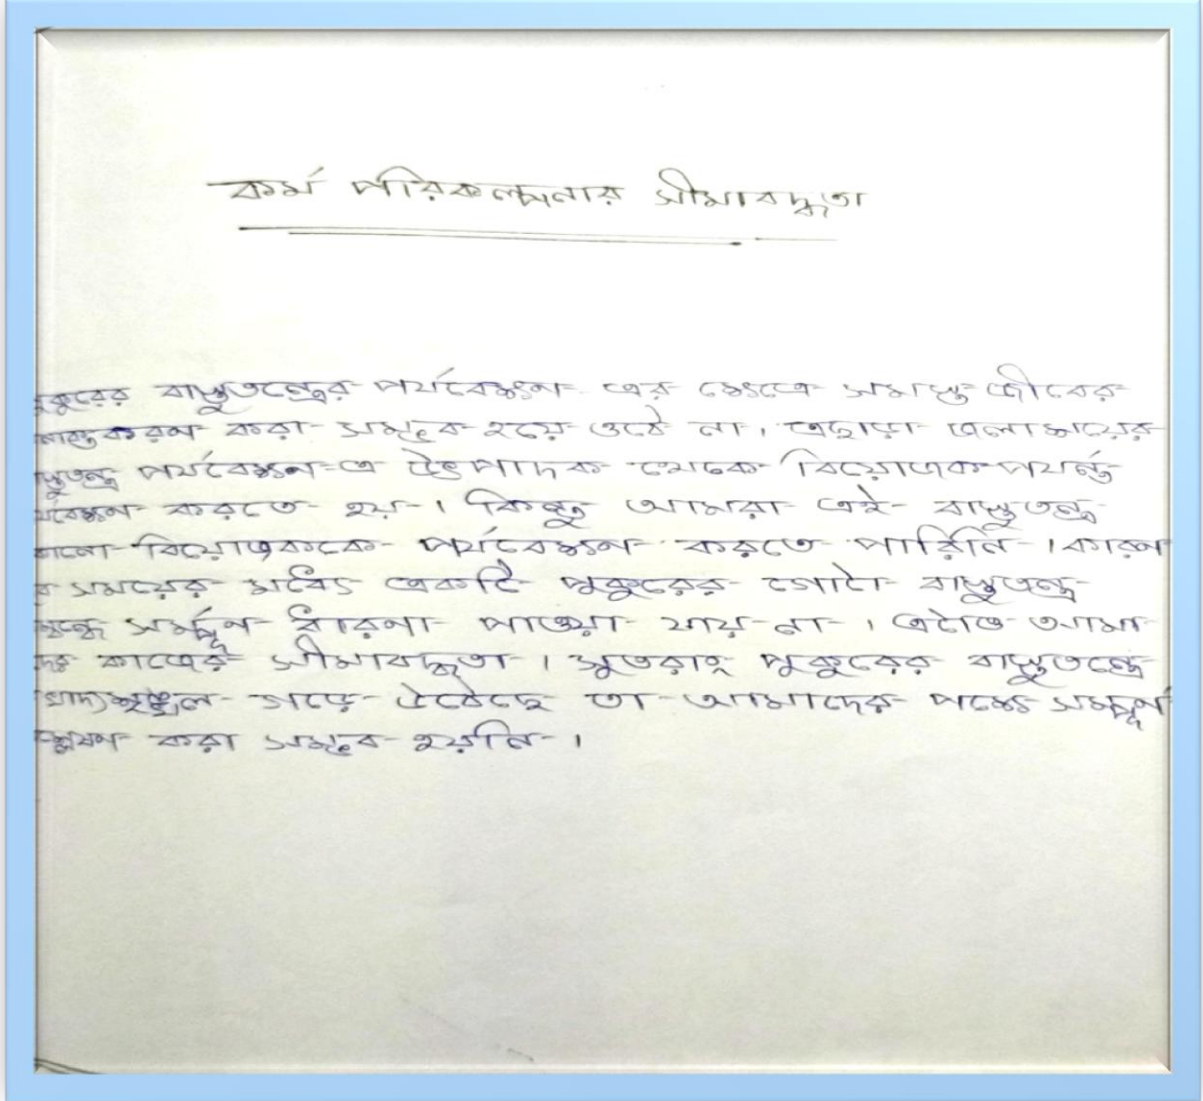 কর্ম পরিকল্পনার সীমাবদ্ধতা
কুরের বাস্তুতন্ত্রের পর্যবেক্ষণ এর ক্ষেত্রে সমস্ত জীবের
করণ করা সম্ভব হয়ে ওঠে না। এছাড়া জলাশয়ের
স্তুতন্ত্র পর্যবেক্ষণ এ উৎপাদক থেকে বিয়োজক পযর্ন্ত
র্যবেক্ষণ করতে হয়। কিন্তু আমরা এই বাস্তুতন্ত্র
কোনো বিয়োজককে পর্যবেক্ষণ করতে পারিনি। কারণ
সময়ের মধ্যে একটি পুকুরের গোটা বাস্তুতন্ত্র
ম্বন্ধে সর্ম্পূণ ধারণা পাওয়া যায় না। এটাও আমা
দের কাজের সীমাবদ্ধতা। সুতরাং পুকুরের বাস্তুতন্ত্রে
খাদ্যশৃঙ্খল গড়ে উঠেছে তা আমাদের পক্ষে সম্পূর্ণ
শ্লেষণ করা সম্ভব হয়নি।